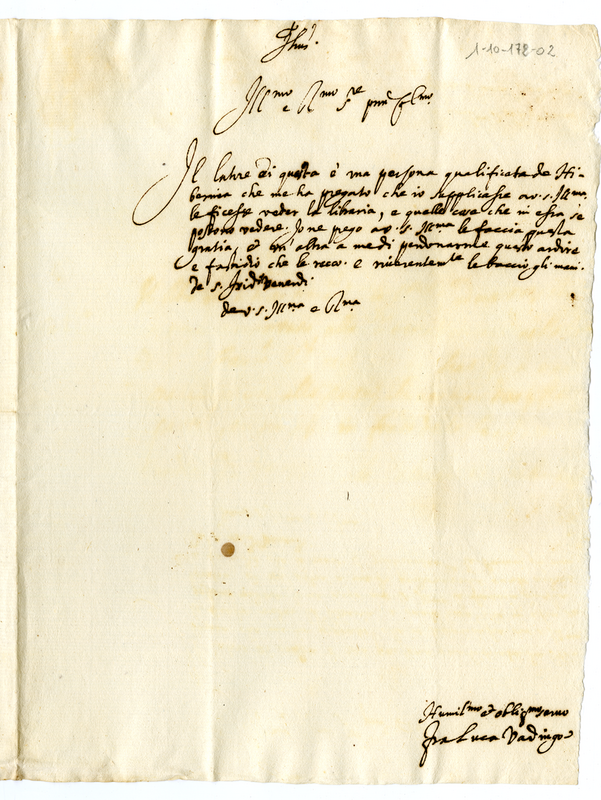 Jhus.
1-10-178-02
Ill.mo e R.mo S.re pron Col.mo
Il latore di questa è una persona qualificata de Hi-
bernia che me ha pregato che io supplicasse a v. s. Ill.ma
le facesse veder la libraria, e quelle cose che in essa se
possono vedere. Io ne pego a v. s. Ill.ma le faccia questa
gratia, et un'altra a me di perdonarme questo ardire
e fastidio che le reco. e riverentem.te le baccio gli mani.
de s. Isid.o venerdi
de v. s. Ill.ma e R.ma
Humil.mo et oblig.mo servo
fra Luca Vadingo